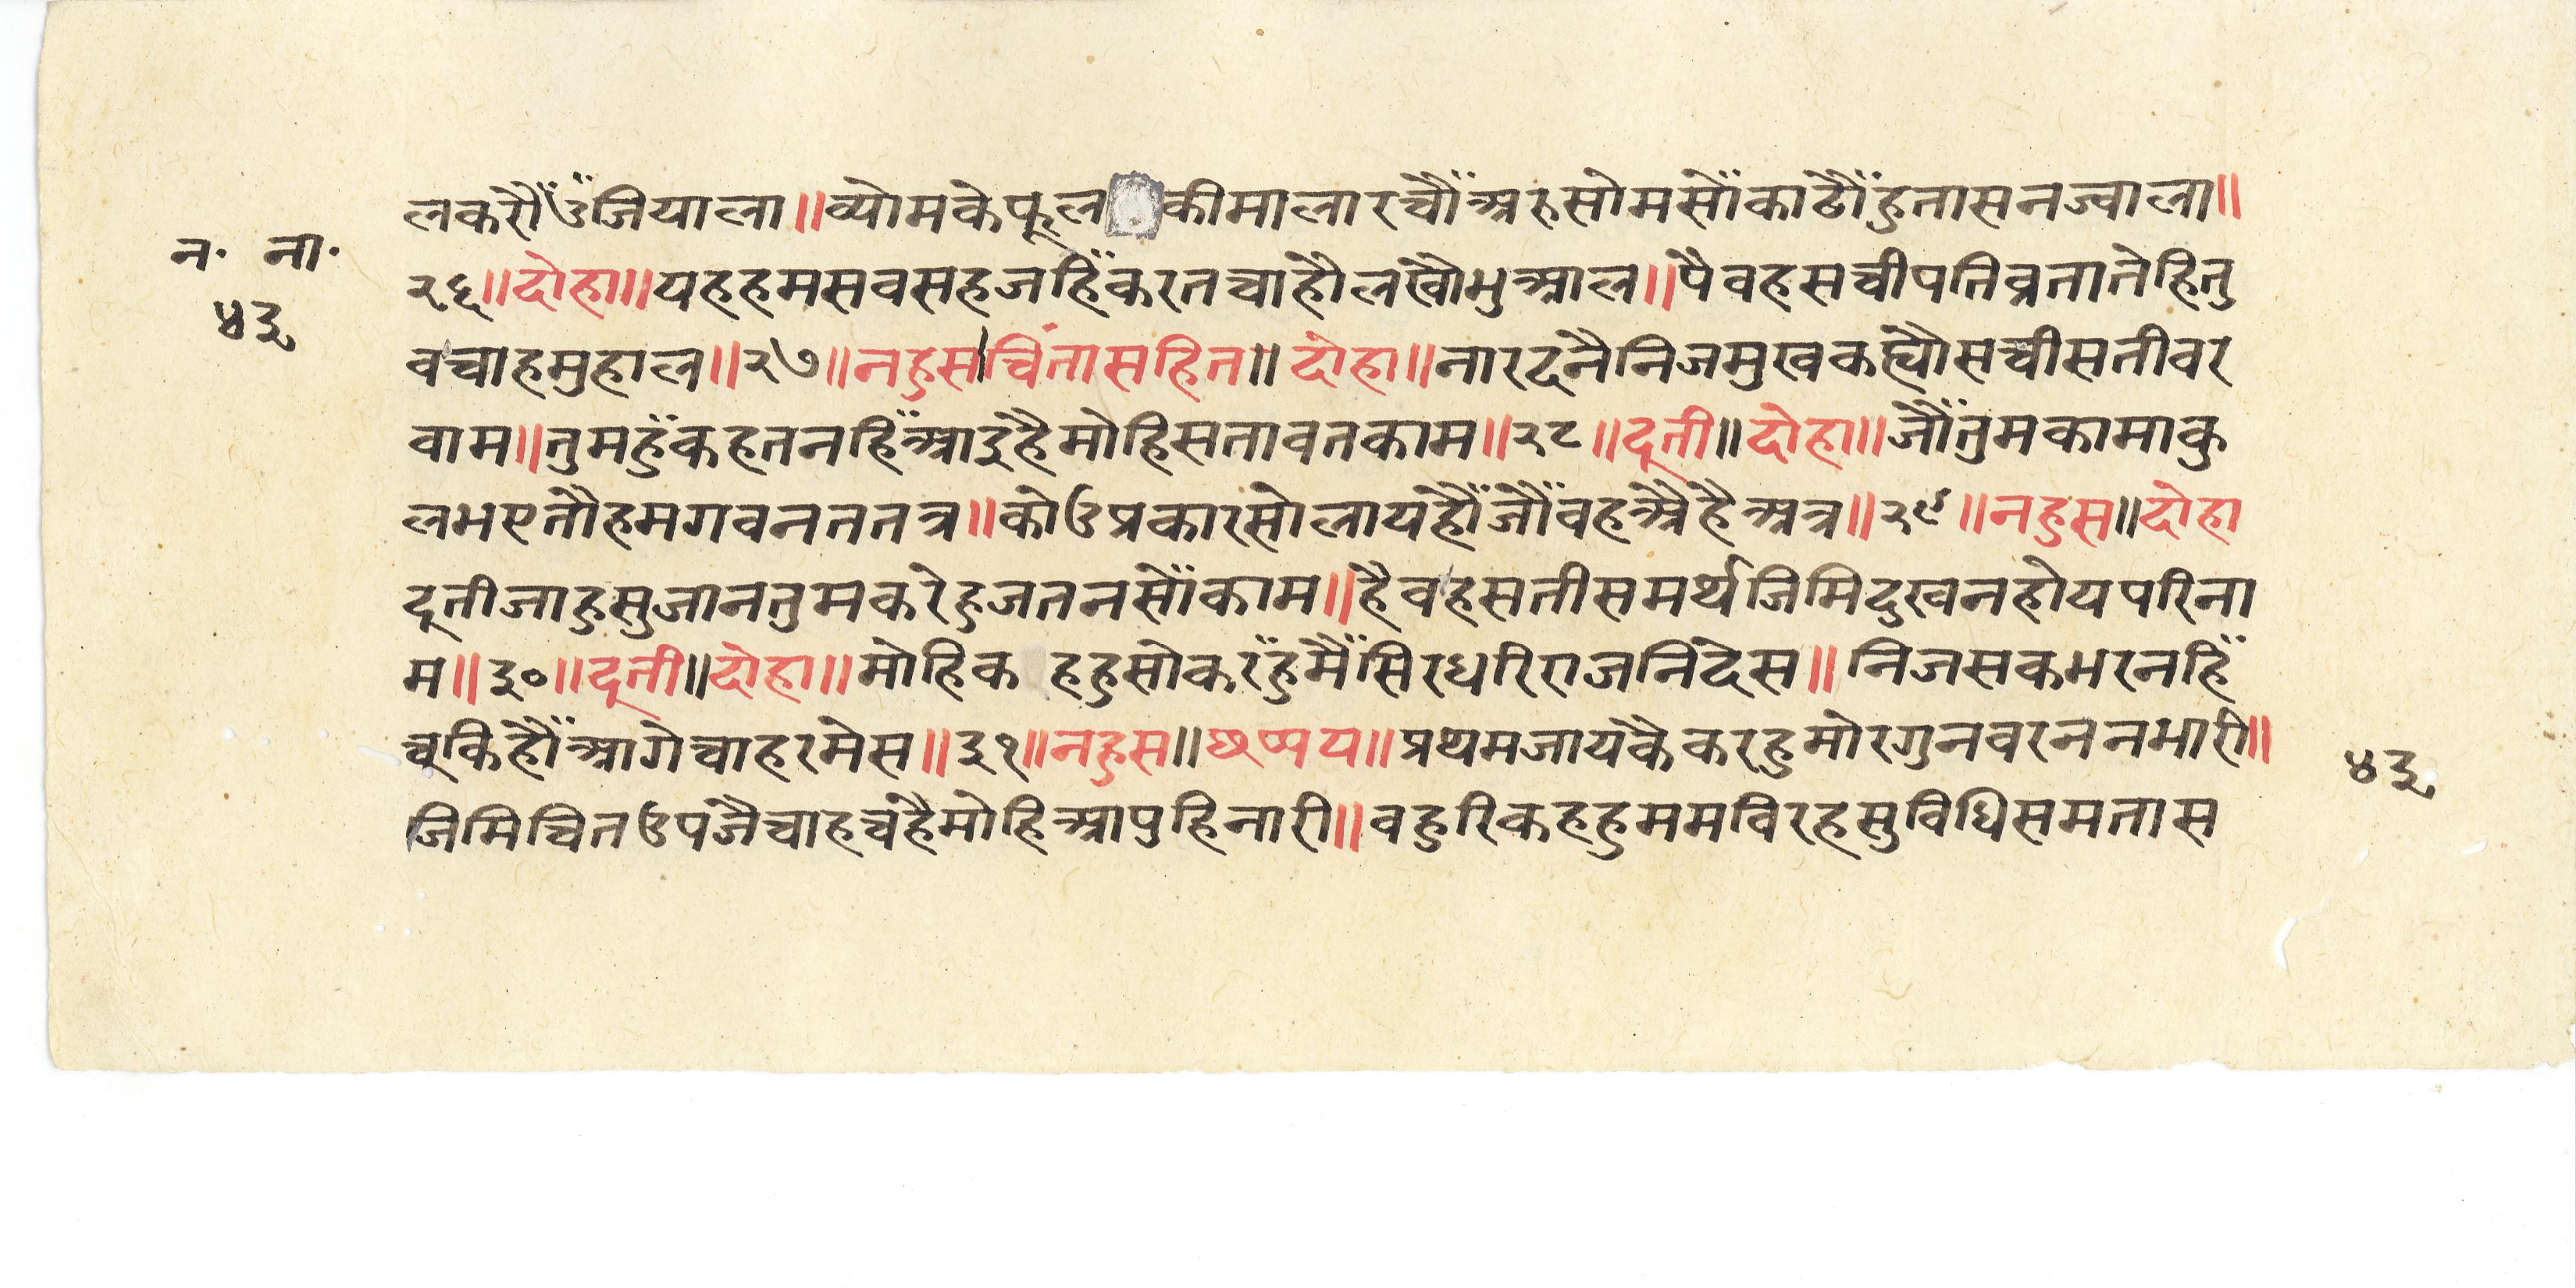 लकरौँउँजियाला॥व्योमकेफूलकीमालारचौँअरुसोमसोँकाढौँहुतासनज्वाला॥
न· ना·
२६॥दोहा॥यहहमसवसहजहिँकरतचाहौलखौभुआल॥पैवहसचीपतिव्रतातेहितु
४३
वचाहमुहाल॥२७॥नहुस।चिंतासहित॥दोहा॥नारदनैनिजमुखकह्यौसचीसतीवर
वाम॥तुमहुँकहतनहिँआइहैमोहिसतावतकाम॥२८॥दूती॥दोहा॥जौँतुमकामाकु
लभएतौहमगवनततत्र॥कोउप्रकारसोलायहौँजौँवहऐहैअत्र॥२९॥नहुस॥दोहा
दूतीजाहुसुजानतुमकरेहुजतनसोँकाम॥हैवहसतीसमर्थजिमिदुखनहोयपरिना
म॥३०॥दूती॥दोहा॥मोहिकहहुसोकरँहुमैँसिरधरिराजनिदेस॥निजसकभरनहिँ
चूकिहौँआगेचाहरमेस॥३१॥नहुस॥छप्पय॥प्रथमजायकैकरहुमोरगुनवरननभारी॥
४३
जिमिचितउपजैचाहचहैमोहिआपुहिनारी॥वहुरिकहहुममविरहसुविधिसमतास